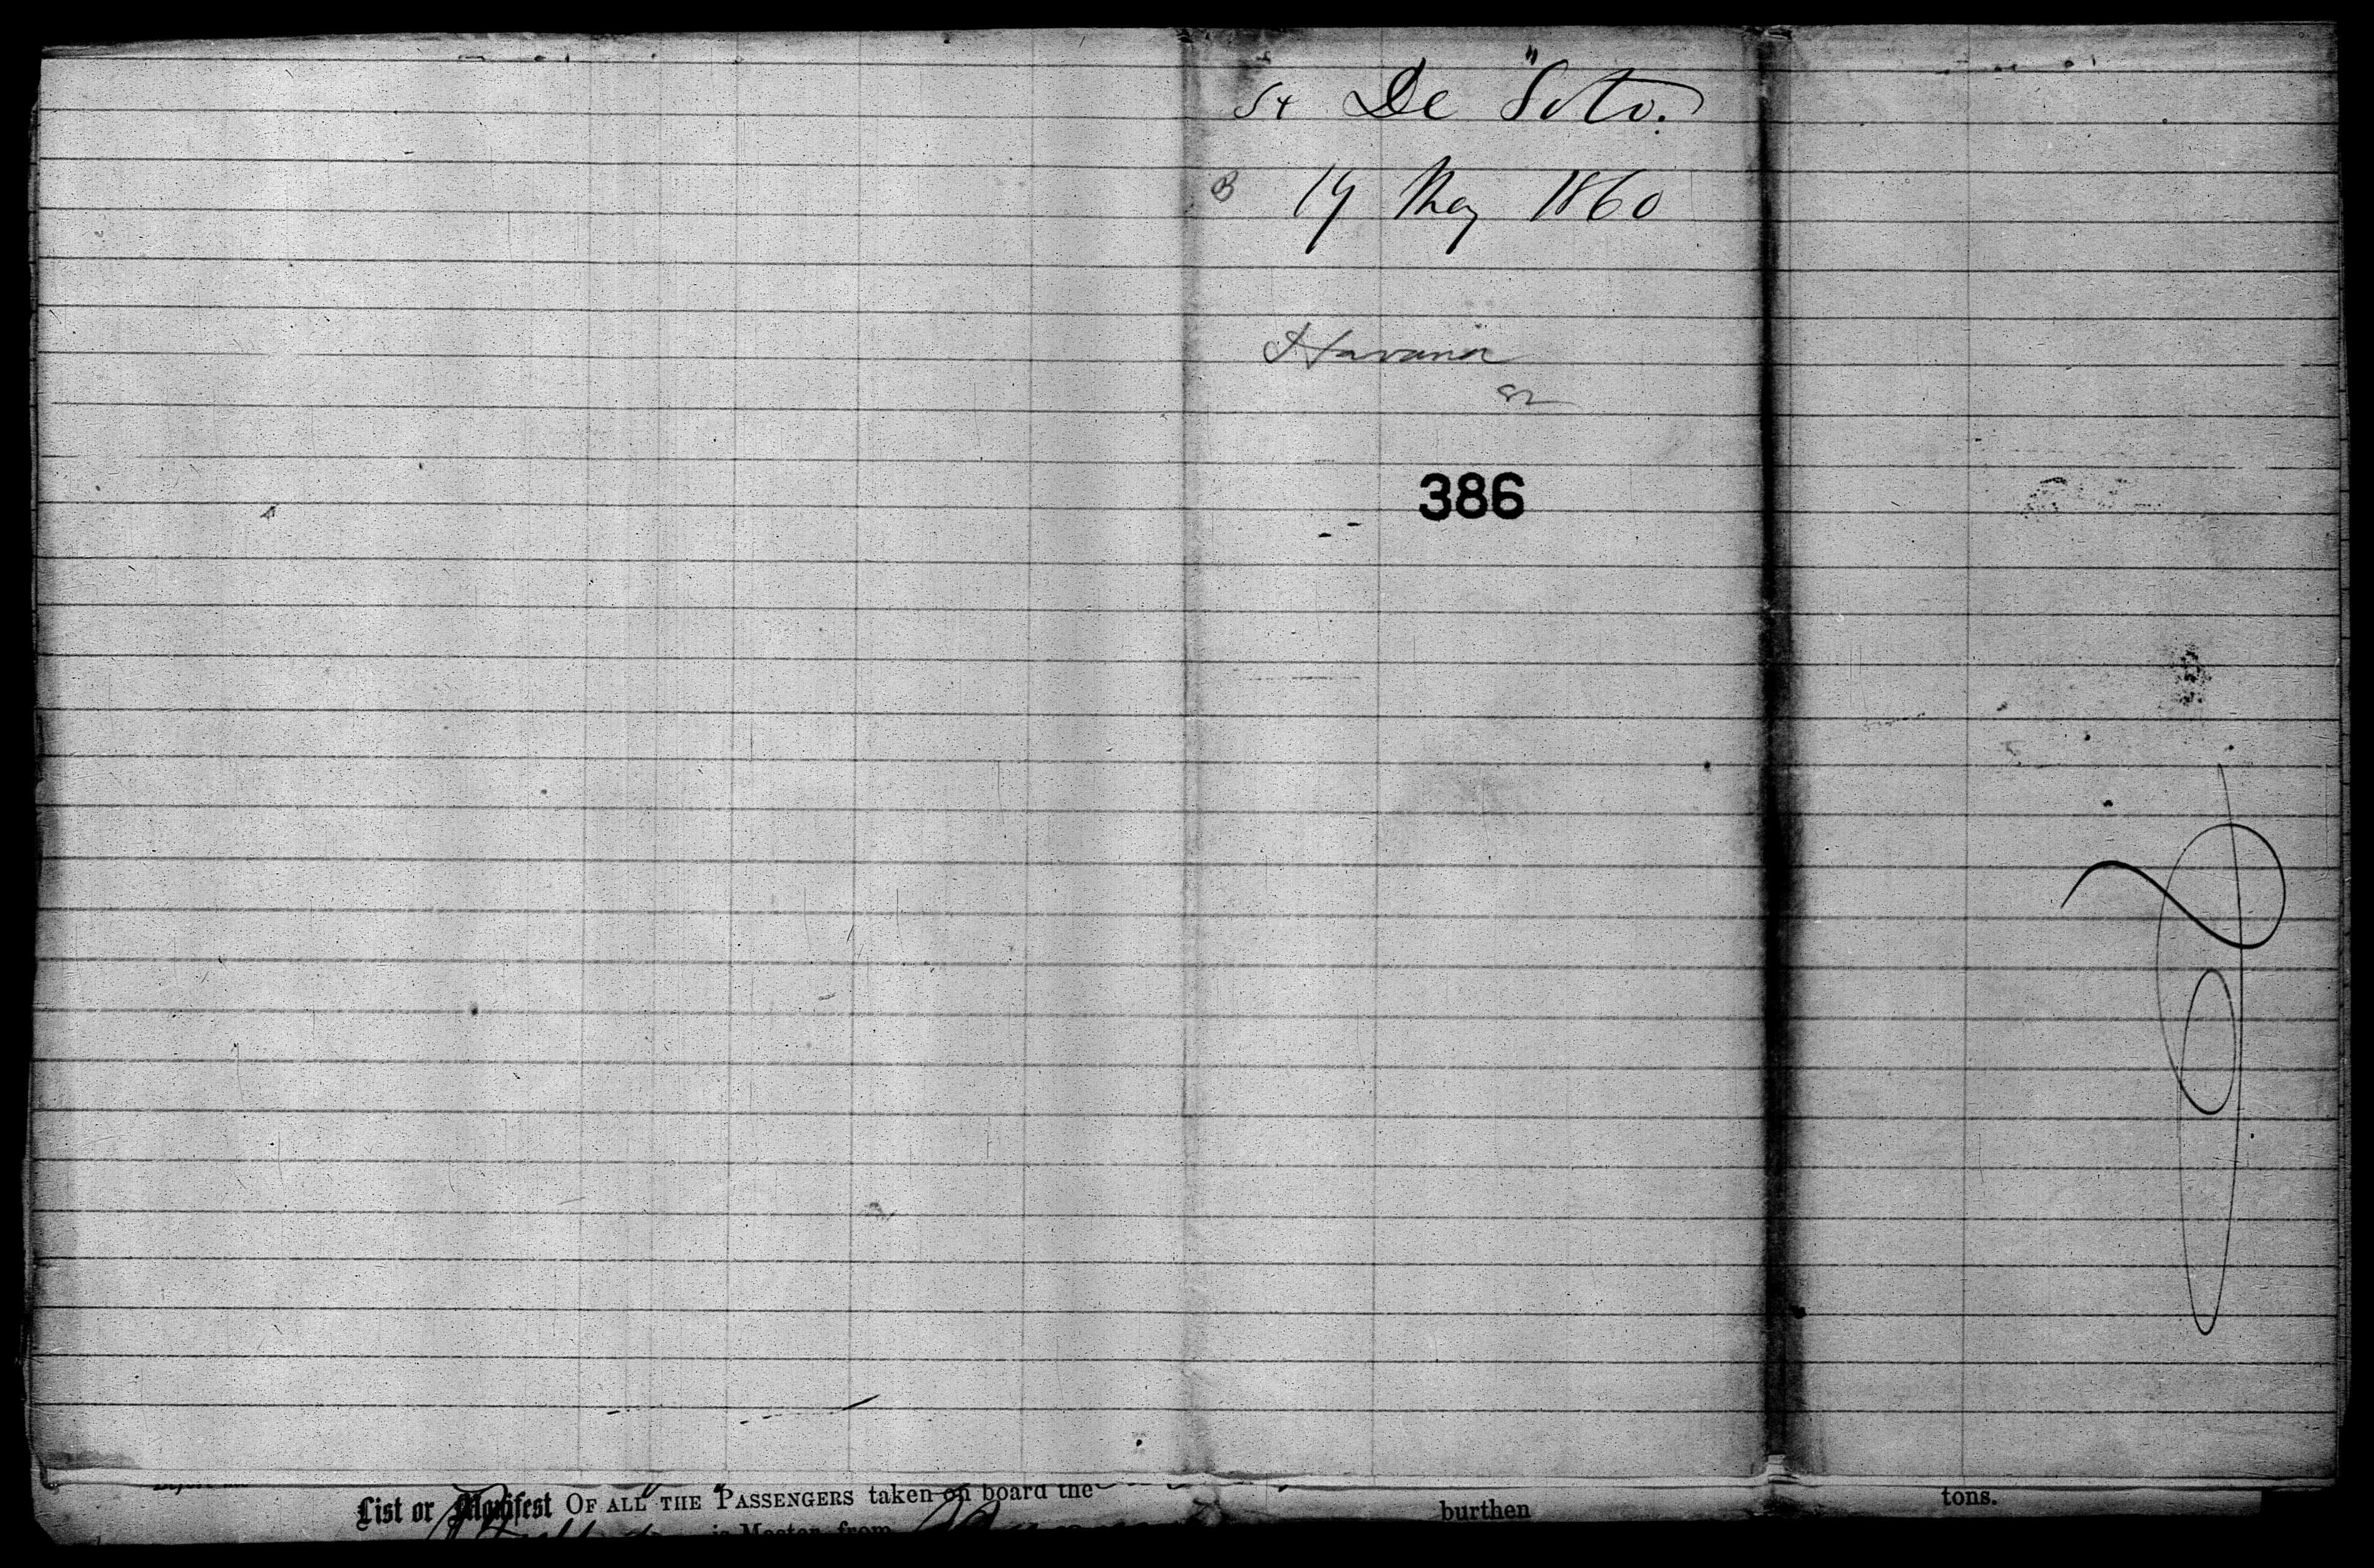 St "De Soto."
B 19 May 1860
Havana
82
386
List or Manifest OF ALL THE PASSENGERS taken on board the
is Master, from
burthen
tons.